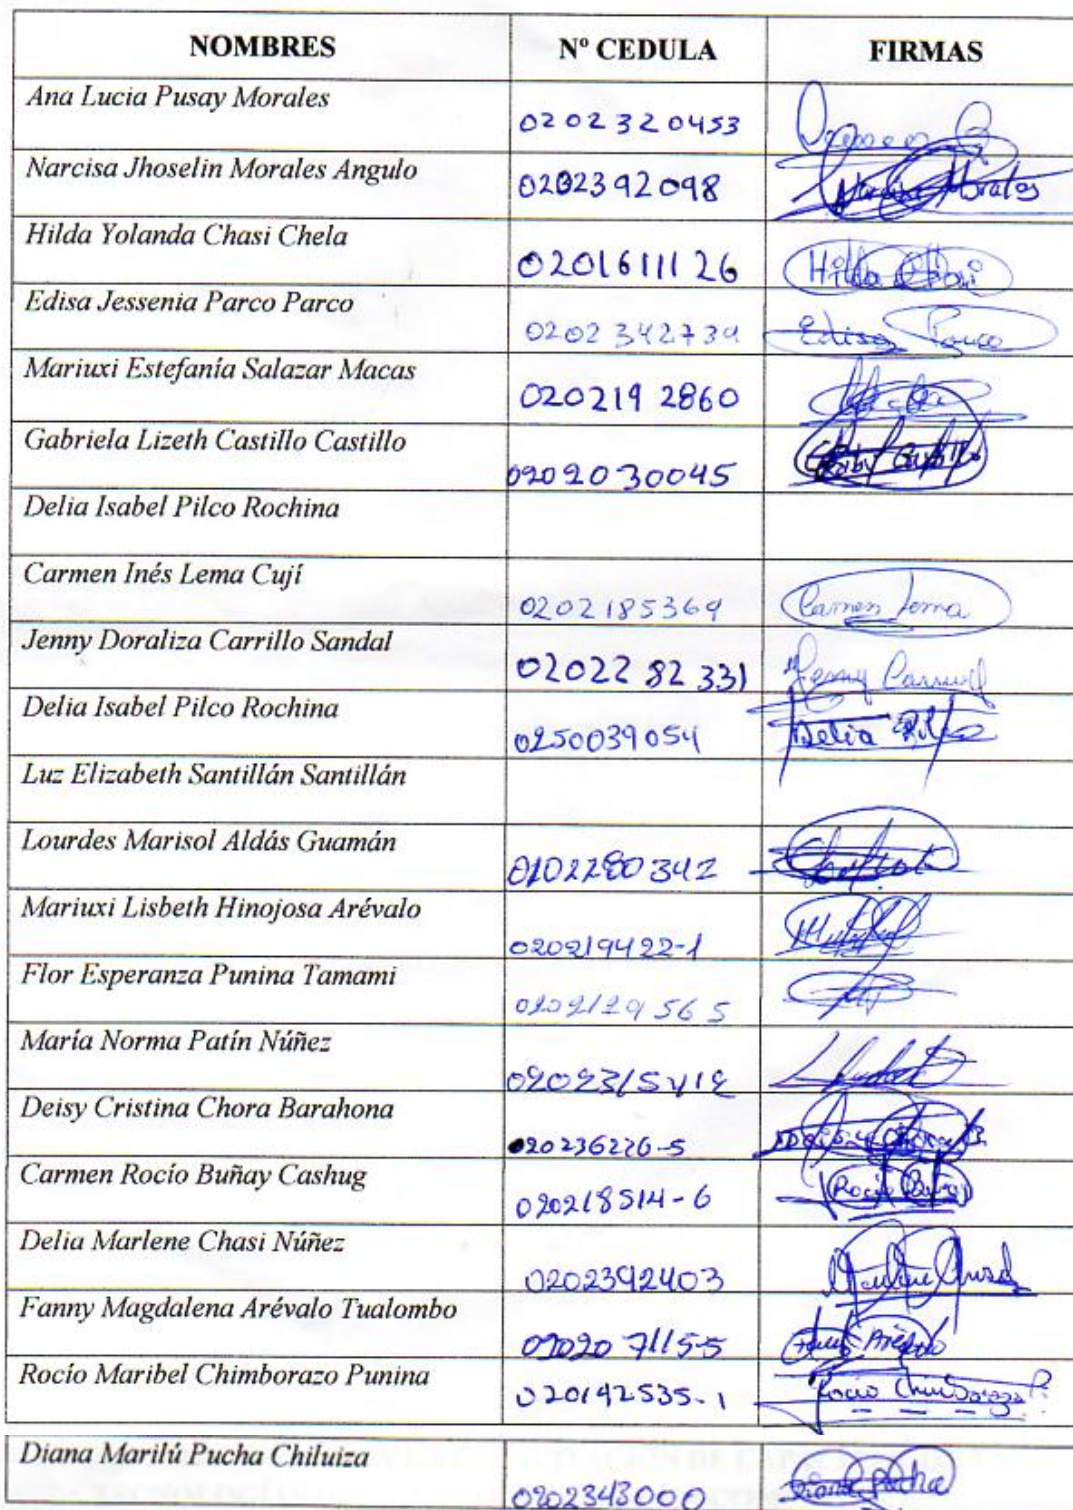 NOMBRES Nº CEDULA FIRMAS
Ana Lucia Pusay Morales 0202320453
Narcisa Jhoselin Morales Angulo 0202392098 Narcisa Morales
Hilda Yolanda Chasi Chela 0201611126 Hilda Chasi
Edisa Jessenia Parco Parco 0202342739 Edisa Parco
Mariuxi Estefanía Salazar Macas 020219 2860
Gabriela Lizeth Castillo Castillo 0202030045 Gaby Castillo
Delia Isabel Pilco Rochina
Carmen Inés Lema Cují 0202185369 Carmen Lema
Jenny Doraliza Carrillo Sandal 02022 82 331 Jenny
Delia Isabel Pilco Rochina 0250039054 Delia
Luz Elizabeth Santillán Santillán
Lourdes Marisol Aldás Guamán 0202280342
Mariuxi Lisbeth Hinojosa Arévalo 020219422-1
Flor Esperanza Punina Tamami 0202129565
María Norma Patín Núñez
Deisy Cristina Chora Barahona 020236226-5
Carmen Rocío Buñay Cashug 020218514-6 Rocío
Delia Marlene Chasi Núñez 0202392403
Fanny Magdalena Arévalo Tualombo 020207115-5
Rocío Maribel Chimborazo Punina 020142535-1 Rocio Chimborazo P.
Diana Marilú Pucha Chiluiza 0202343000 Diana Pucha